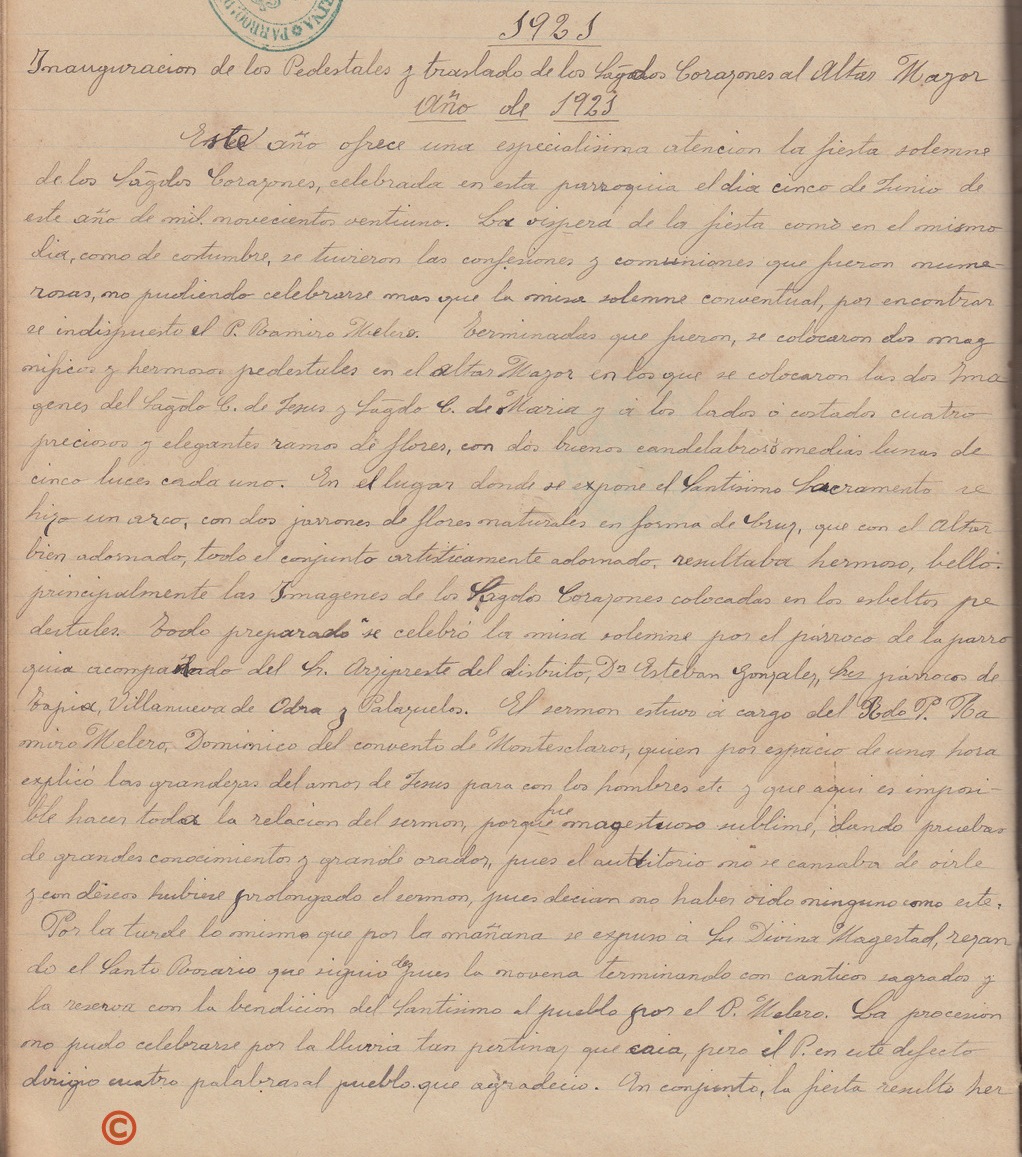 PARROQ
1921
Inauguracion de los Pedestales y traslado de los Ságdos Corazones al Altar Mayor
Año de 1921
Este año ofrece una especialisima atencion la fiesta solemne
de los Ságdos Corazones, celebrada en esta parroquia el dia cinco de Junio de
este año de mil novecientos ventiuno. La vispera de la fiesta como en el mismo
dia, como de costumbre, se tuvieron las confesiones y comuniones que fueron nume-
rosas, no pudiendo celebrarse mas que la misa solemne conventual, por encontrar
se indispuesto el P. Ramiro Melero. Terminadas que fueron, se colocaron dos mag
nificos y hermosos pedestales en el altar Mayor en los que se colocaron las dos Ima
genes del Ságdo C. de Jesus y Ságdo C. de Maria y á los lados ó costados cuatro
preciosos y elegantes ramos de flores, con dos buenos candelabros ó medias lunas de
cinco luces cada uno. En el lugar donde se expone el Santisimo Sacramento se
hizo un arco, con dos jarrones de flores naturales en forma de Cruz, que con el Altar
bien adornado, todo el conjunto artisticamente adornado, resultaba hermoso, bello.
principalmente las Imagenes de los Ságdos Corazones colocadas en los esbeltos pe
destales. Todo preparado se celebró la misa solemne por el párroco de la parro
quia acompañado del Sr. Arzipreste del distrito, Dn Esteban Gonzalez, parrocos de
Tapia, Villanueva de Odra y Palazuelos. El sermon estuvo á cargo del Rdo P. Ra
miro Melero, Dominico del convento de Montesclaros, quien por espacio de una hora
explicó las grandezas del amor de Jesus para con los hombres etc y que aqui es imposi-
ble hacer toda la relacion del sermon, porque fue magestuoso sublime, dando pruebas
de grandes conocimientos y grande orador, pues el auditorio no se cansaba de oirle
y con deseos hubiese prolongado el sermon, pues decian no haber oido ninguno como este.
Por la tarde lo mismo que por la mañana se expuso á Su Divina Magestad, rezan
do el Santo Rosario que siguio despues la novena terminando con canticos sagrados y
la reserva con la bendicion del Santisimo al pueblo por el P. Melero. La procesion
no pudo celebrarse por la lluvia tan pertinaz que caia, pero el P. en este defecto
dirigio cuatro palabras al pueblo que agradecio. En conjunto, la fiesta resulto her
©